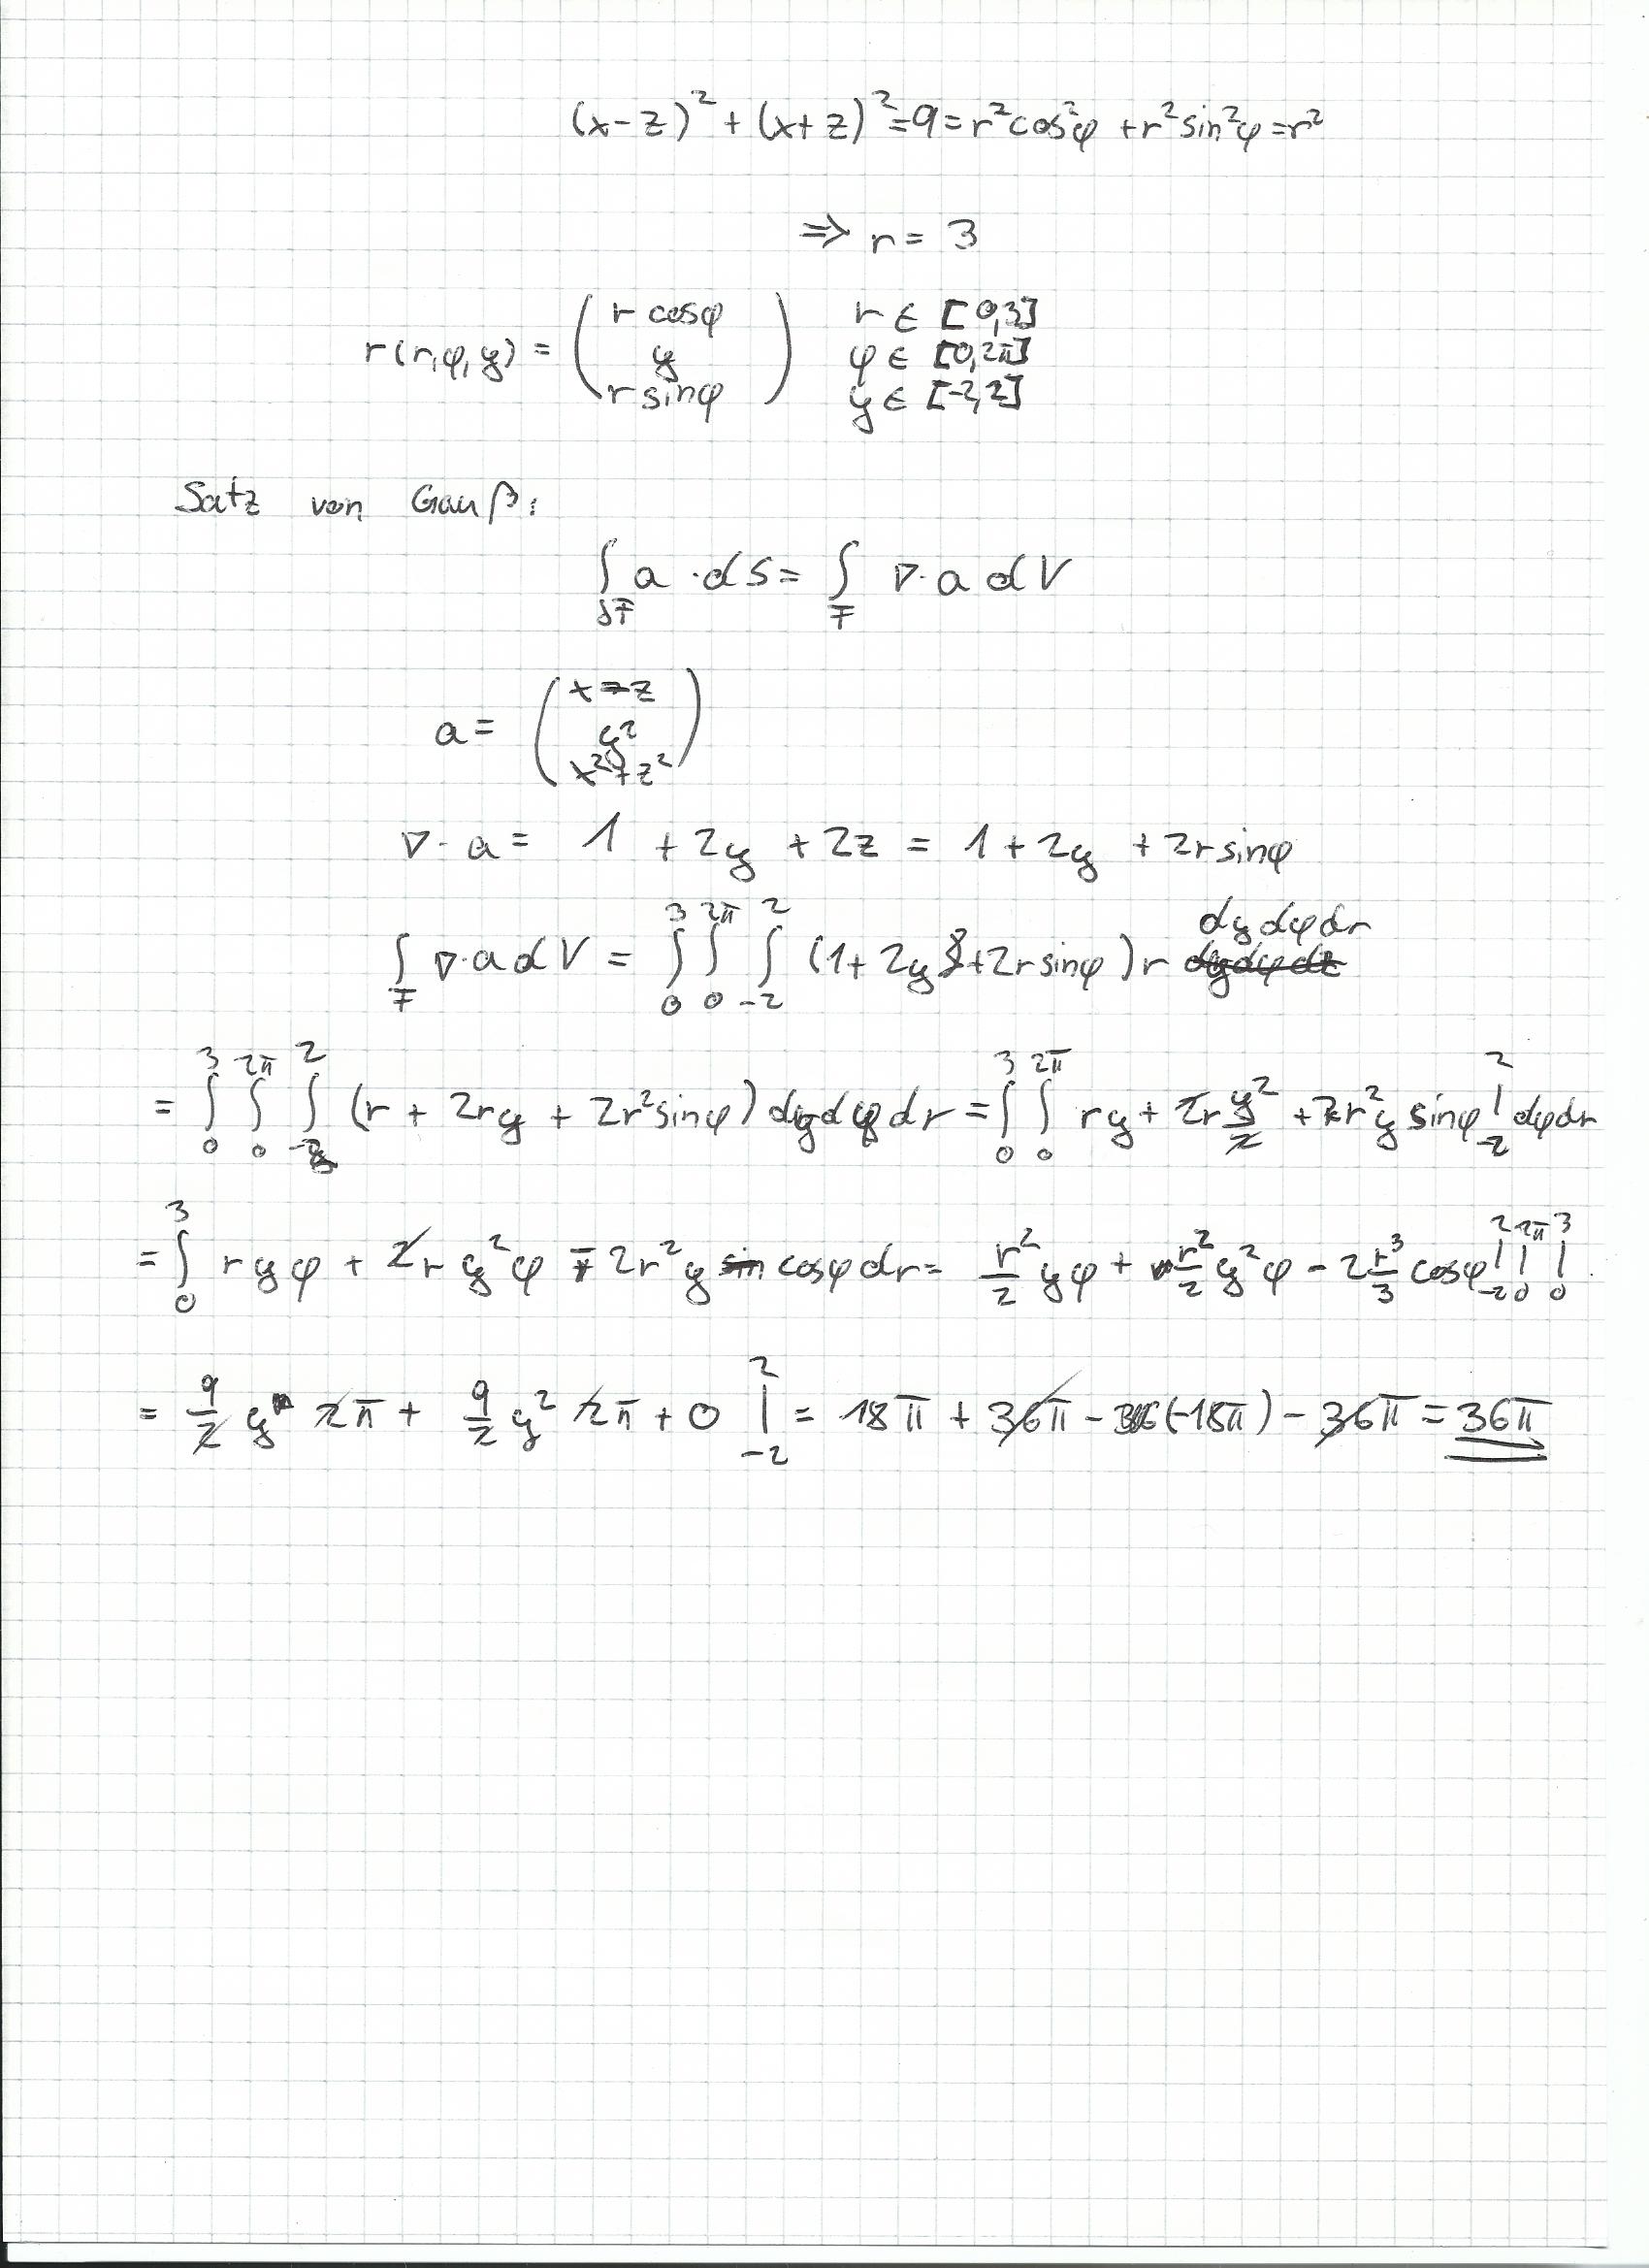 (x-z)² + (x+z)² = 9 = r²cos²φ + r²sin²φ = r²
⇒ r = 3
r(r,φ,y) = ( r cosφ   r ∈ [0,3]
y   φ ∈ [0,2π]
r sinφ )   y ∈ [-2,2]
Satz von Gauß:
∫_δF a · dS = ∫_F ∇· a dV
a = ( x-z
y²
x²+z² )
∇· a = 1 + 2y + 2z = 1 + 2y + 2r sinφ
∫_F ∇·a dV = ∫_0^3 ∫_0^2π ∫_-2^2 (1 + 2y + 2r sinφ) r dy dφ dr
= ∫_0^3 ∫_0^2π ∫_-2^2 (r + 2ry + 2r² sinφ) dy dφ dr = ∫_0^3 ∫_0^2π ry + 2r y²/2 + 2r²y sinφ |_-2^2 dφ dr
= ∫_0^3 r y φ + 2r y²φ - 2r²y cosφ dr = r²/2 yφ + r²/2 y²φ - 2 r³/3 cosφ |_-2^2 |_0^2π |_0^3
= 9/2 y 2π + 9/2 y² 2π + 0 |_-2^2 = 18π + 36π - (-18π) - 36π = 36π